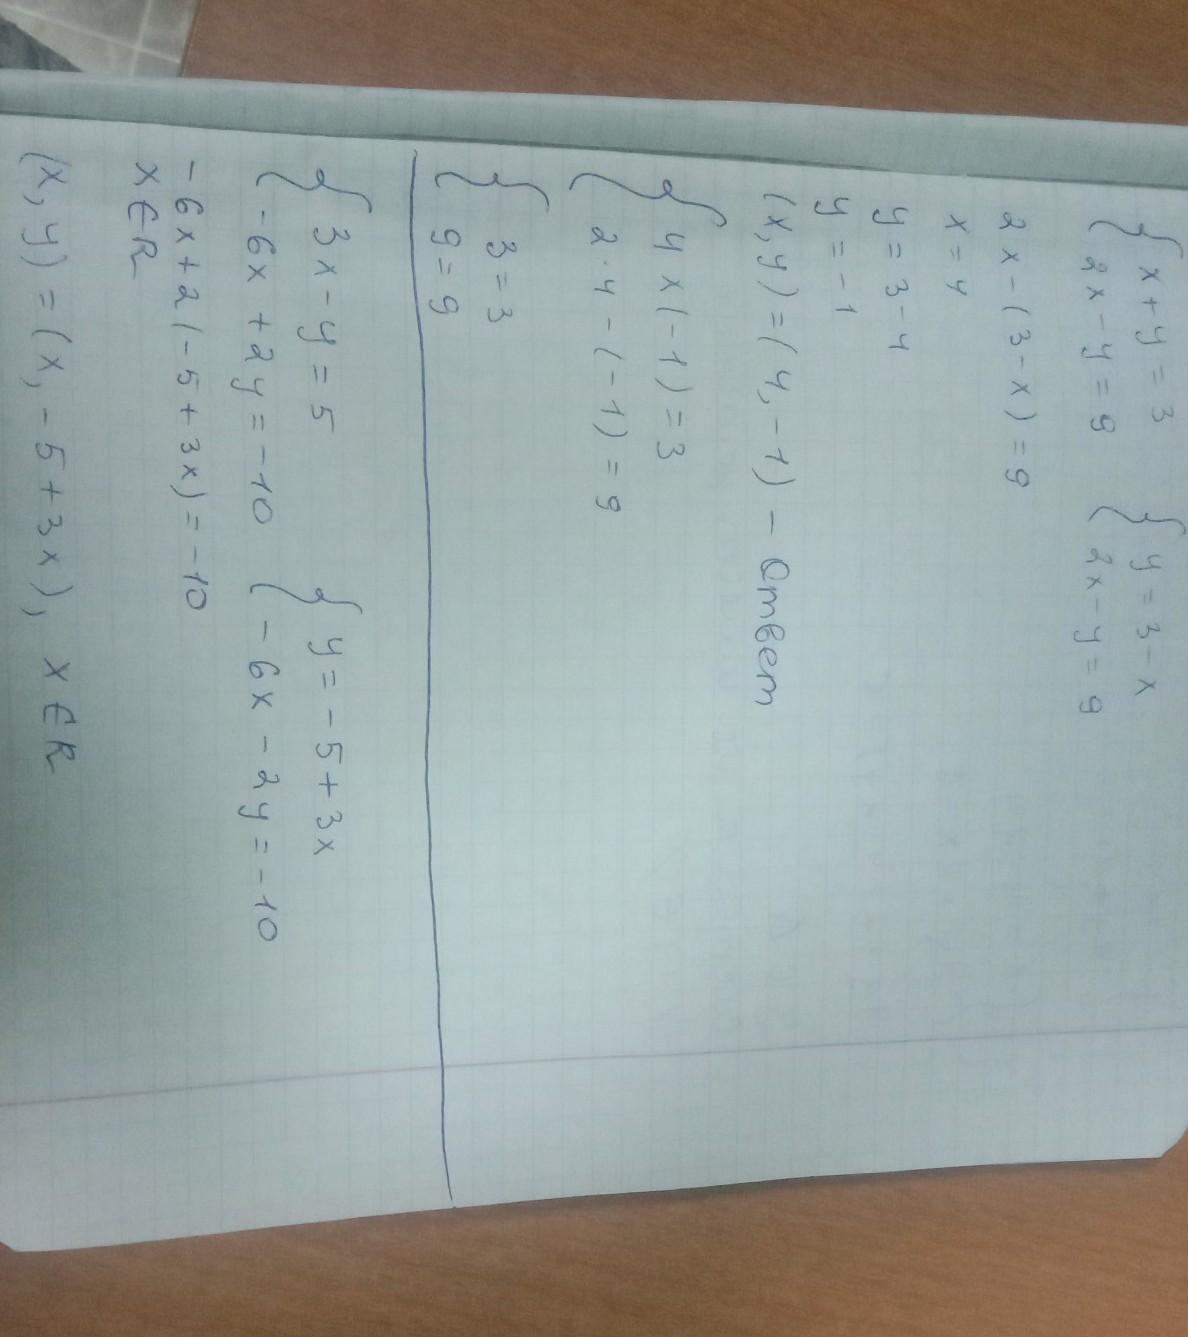 { x + y = 3 { y = 3 - x
{ 2x - y = 9 { 2x - y = 9
2x - (3 - x) = 9
x = 4
y = 3 - 4
y = -1
(x, y) = (4, -1) - Ответ
{ 4 x (-1) = 3
{ 2 · 4 - (-1) = 9
{ 3 = 3
{ 9 = 9
{ 3x - y = 5 { y = -5 + 3x
{ -6x + 2y = -10 { -6x - 2y = -10
-6x + 2(-5 + 3x) = -10
x ∈ R
(x, y) = (x, -5 + 3x), x ∈ R